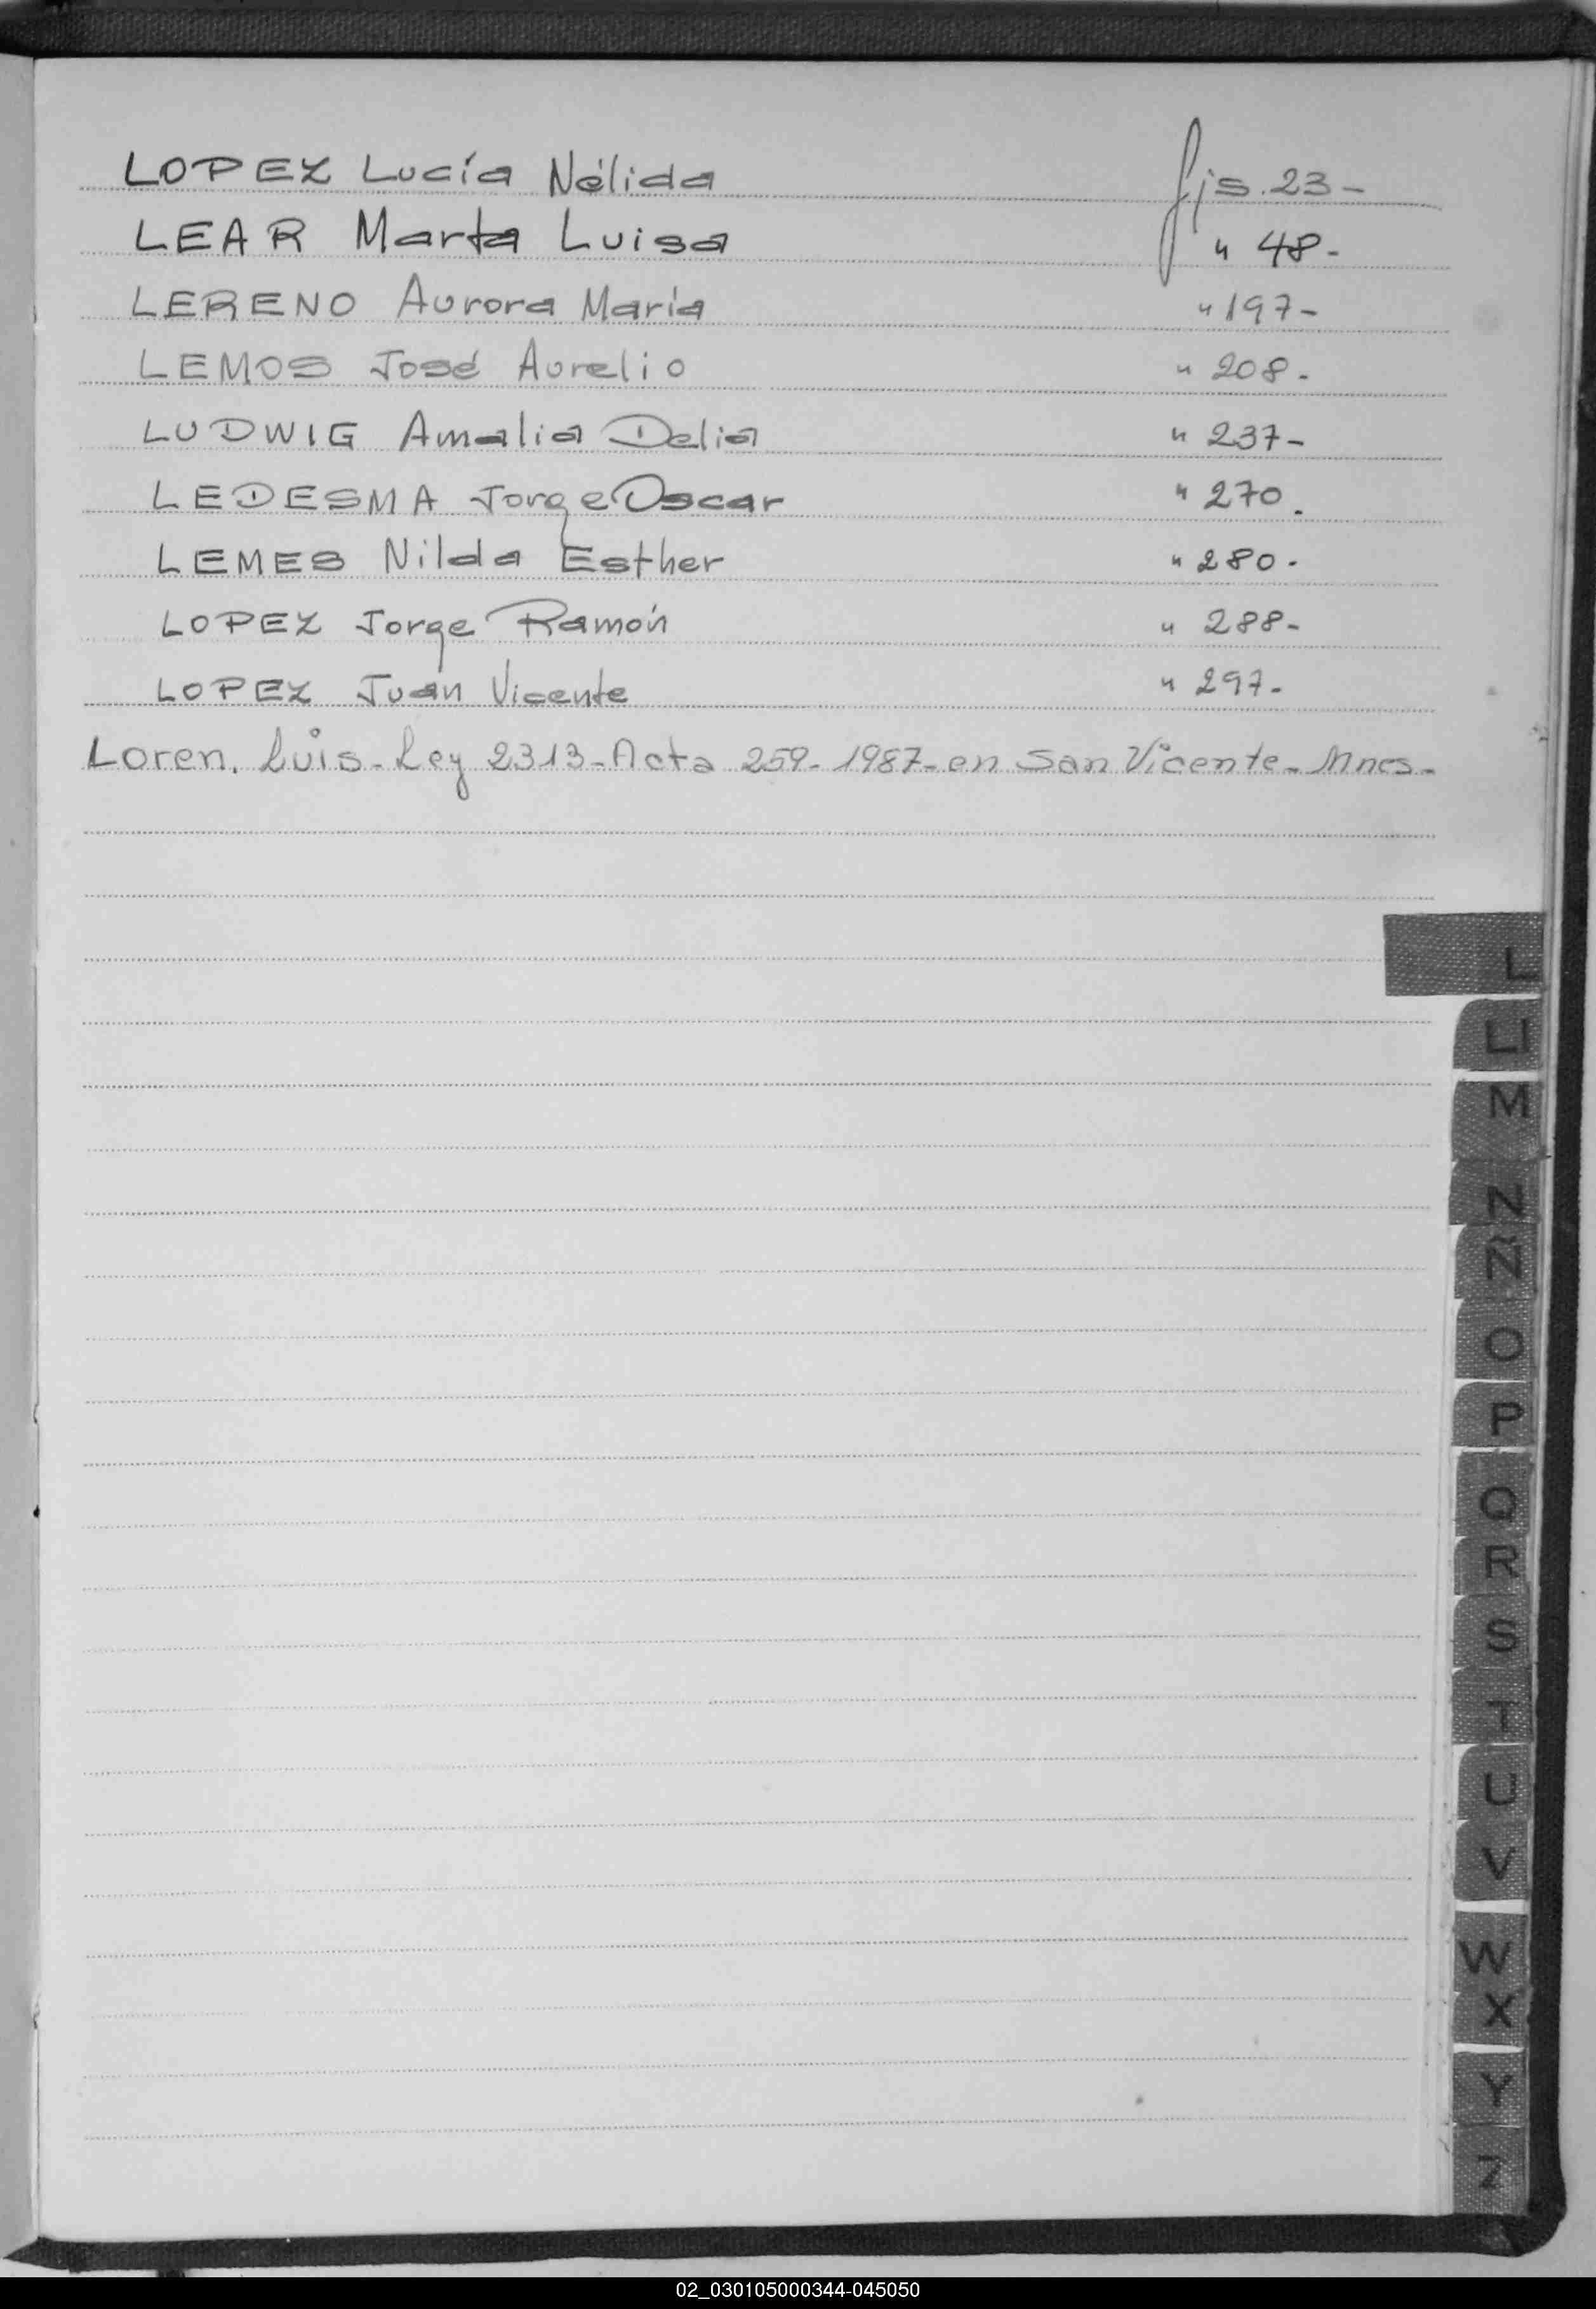 LOPEZ Lucía Nélida fjs. 23-
LEAR Marta Luisa " 48-
LERENO Aurora María " 197-
LEMOS José Aurelio " 208.
LUDWIG Amalia Delia " 237-
LEDESMA Jorge Oscar " 270.
LEMES Nilda Esther " 280.
LOPEZ Jorge Ramón " 288-
LOPEZ Juan Vicente " 297-
Loren. Luis-Ley 2313-Acta 259-1987-en San Vicente-Mnes-
L
LL
M
N
Ñ
O
P
Q
R
S
T
U
V
W
X
Y
Z
02_030105000344-045050